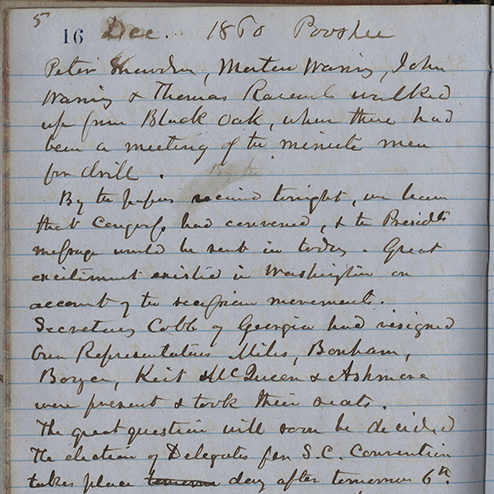 5
16 Dec. 1860 Pooshee
Peter Snowden, Morton Waring, John
Waring & Thomas Ravenel walked
up from Black Oak, where there had
been a meeting of the minute men
for drill.
By the papers received tonight, we learn
that Congress had convened, & the Presidts
message would be sent in today. Great
excitement existed in Washington on
account of the secession movement.
Secretary Cobb of Georgia had resigned
Our Representatives Miles, Bonham,
Boyce, Keit McQueen & Ashmore
were present & took their seats.
The great question will soon be decided
The election of Delegates for S.C. Convention
takes place day after tomorrow 6th.